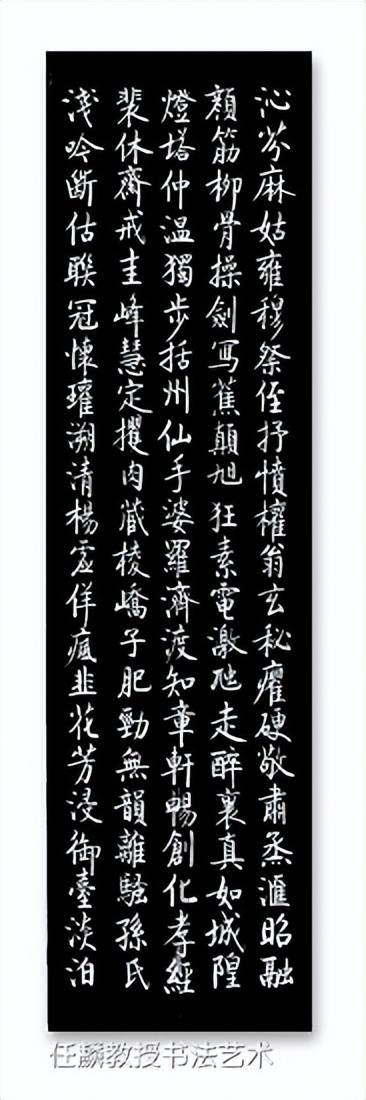 沁芬麻姑雍穆祭侄抒憤權翁玄秘癯硬敬肅烝滙昭融
顏筋柳骨操劍寫蕉顛旭狂素電激虺走醉裏真如城隍
燈塔仲溫獨步括州仙手婆羅濟渡知章軒暢創化孝經
裴休齋戒圭峰慧定攫肉藏棱嶠子肥勁無韻離騷孫氏
淺吟斷估聯冠懷瓘溯清楊虛佯瘋韭花芳浸御臺淡泊
任麟教授书法艺术